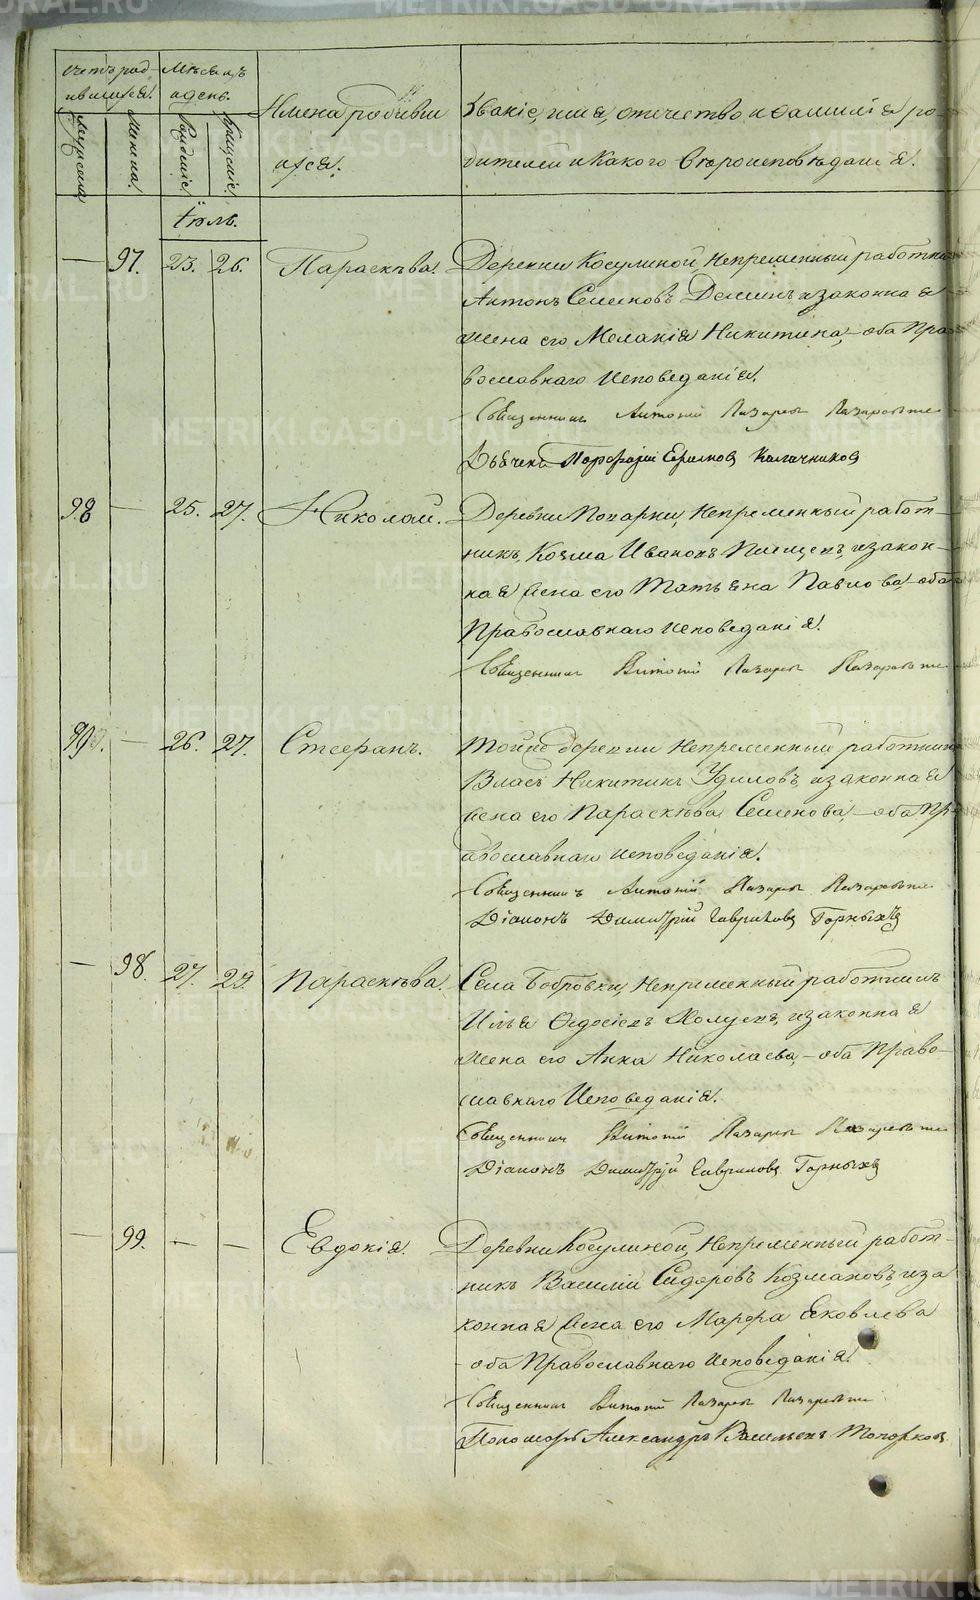 Счетъ род-
ившихся.
Мѣсяцъ
и день.
Имена родивш
ихся.
Званіе, имя, отечество и фамилія ро-
дителей и какого вѣроисповѣданія.
Мужеска
Женска.
Рожденіе
Крещеніе.
Іюль.
— 97. 23. 26. Параскѣва. Деревни Косулиной, Непременный работникъ
Антонъ Семеновъ Деминъ и законная
жена его Меланія Никитина, оба Пра-
вославнаго исповеданія.
Священникъ Антоній Лазаревъ
Дьячекъ Порфирій Калачниковъ
98 — 25. 27. Николай. Деревни Попарни, Непременный работ-
никъ, Козма Ивановъ и закон-
ная жена его Татьяна Павлова, оба
Православнаго исповеданія.
Священникъ Антоній Лазаревъ
99. — 26. 27. Стефанъ. Тойже деревни Непременный работникъ
Власъ Никитинъ Удиловъ, и законная
жена его Параскѣва Семенова, оба Пр-
авославнаго исповеданія.
Священникъ Антоній Лазаревъ
Діаконъ Димитрій Гавриловъ Горныхъ
— 98. 27. 29. Параскѣва. Села Бобровки, Непременный работникъ
Илья Федосіевъ и законная
жена его Анна Николаева, — оба Право-
славнаго Исповеданія.
Священникъ Антоній Лазаревъ
Діаконъ Димитрій Гавриловъ Горныхъ
— 99. — — Евдокія. Деревни Косулиной, Непременный работ-
никъ Василій Сидоровъ Козмановъ, и за
конная жена его Марфа Яковлева
— оба Православнаго исповеданія.
Священникъ Антоній Лазаревъ
Пономарь Александръ Васильевъ Топорковъ
METRIKI.GASO-URAL.RU